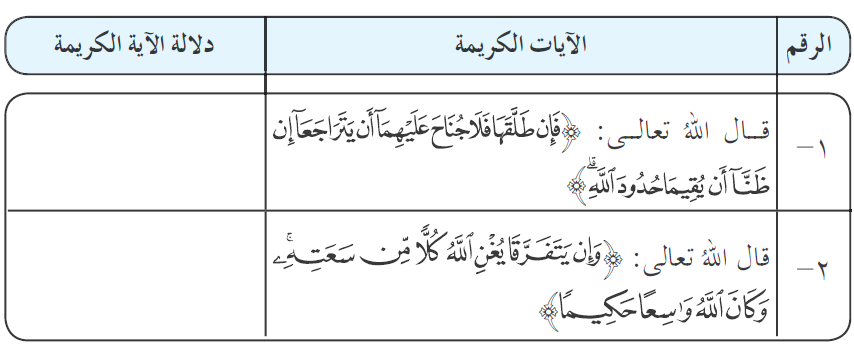 الرقم الآيات الكريمة دلالة الآية الكريمة
١– قال اللهُ تعالى: ﴿فَإِن طَلَّقَهَا فَلَا جُنَاحَ عَلَيْهِمَآ أَن يَتَرَاجَعَآ إِن
ظَنَّآ أَن يُقِيمَا حُدُودَ ٱللَّهِۗ﴾
٢– قال اللهُ تعالى: ﴿وَإِن يَتَفَرَّقَا يُغْنِ ٱللَّهُ كُلًّا مِّن سَعَتِهِۦۚ
وَكَانَ ٱللَّهُ وَٰسِعًا حَكِيمًا﴾